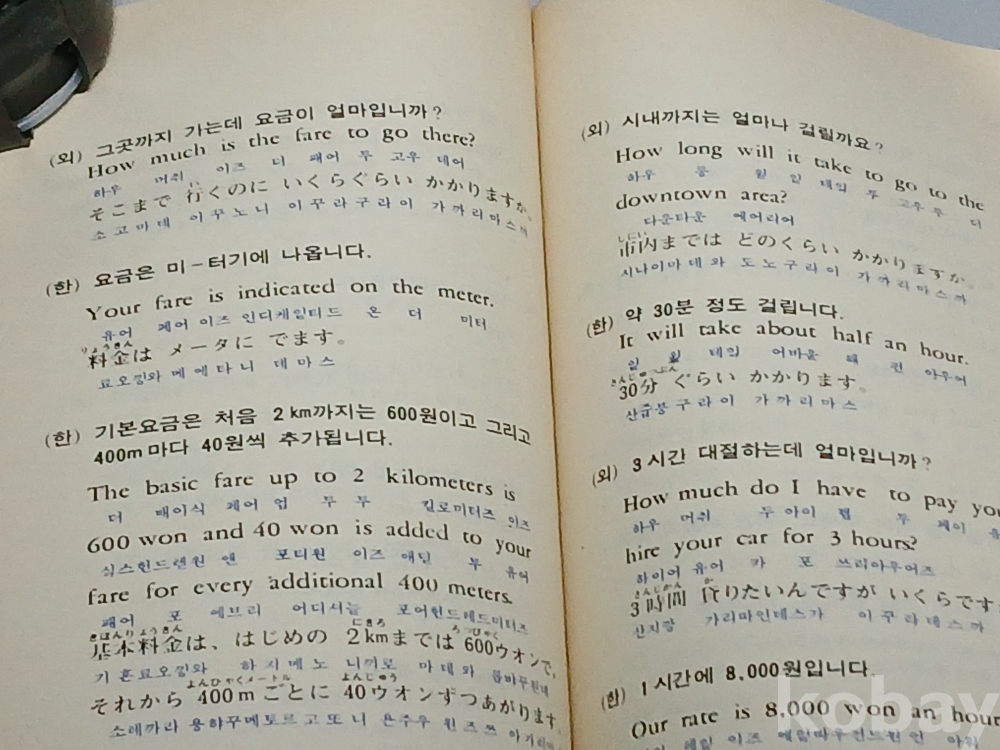 (외) 그곳까지 가는데 요금이 얼마입니까?
How much is the fare to go there?
하우 머취 이즈 더 패어 투 고우 데어
そこまで 行くのに いくらぐらい かかりますか。
소고마데 이꾸노니 이꾸라구라이 가까리마스까
(한) 요금은 미-터기에 나옵니다.
Your fare is indicated on the meter.
유어 페어 이즈 인디케일티드 온 더 미터
りょうきん
料金は メータに でます。
료오낑와 메에타니 데마스
(한) 기본요금은 처음 2km까지는 600원이고 그리고
400m마다 40원씩 추가됩니다.
The basic fare up to 2 kilometers is
더 배이식 페어 업 투 투 킬로미터즈 이즈
600 won and 40 won is added to your
식스헌드렌원 앤 포디원 이즈 애딛 투 유어
fare for every additional 400 meters.
패어 포 에브리 어디셔늘 포어헌드레드미터즈
きほんりょうきん にきろ ろっぴゃく
基本料金は、はじめの 2kmまでは 600ウオンで、
기혼료오낑와 하지메노 니끼로 마데와
よんひゃくメートル よんじゅう
それから 400mごとに 40ウオンずつあがります
소레까라 용햐꾸메토르고또니
(외) 시내까지는 얼마나 걸릴까요?
How long will it take to go to the
하우 롱 윌 잍 테잌 투 고우 투 더
downtown area?
다운타운 에어리어
しない
市内までは どのくらい かかりますか。
시나이마데와 도노구라이 가까리마스까
(한) 약 30분 정도 걸립니다.
It will take about half an hour.
잍 윌 테잌 어바웉 해 펀 아우어
さんじゅっぷん
30分 ぐらい かかります。
산쥽뿡 구라이 가까리마스
(외) 3시간 대절하는데 얼마입니까?
How much do I have to pay you
하우 머취 두 아이 햅 투 페이 유
hire your car for 3 hours?
하이어 유어 카 포 쓰리아우어즈
さんじかん か
3時間 借りたいんですが いくらです
산지깡 가리따인데스가 이꾸라데스까
(한) 1시간에 8,000원입니다.
Our rate is 8,000 won an hour
kobay